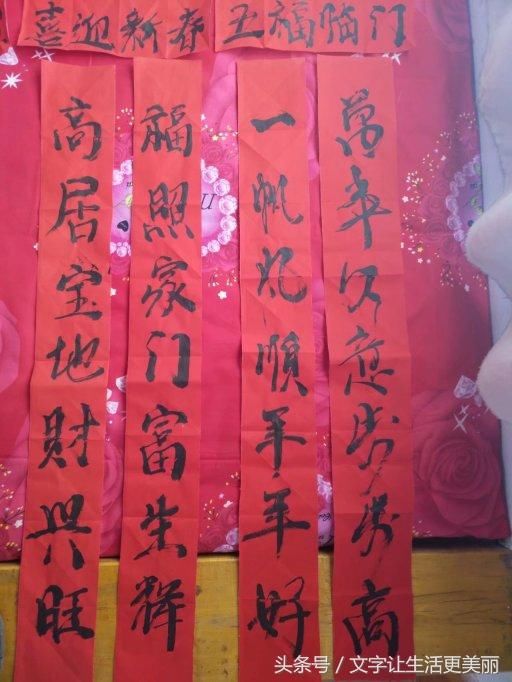 喜迎新春
五福临门
高居宝地财兴旺
福照家门富生辉
一帆风顺年年好
萬事如意步步高
头条号／文字让生活更美丽